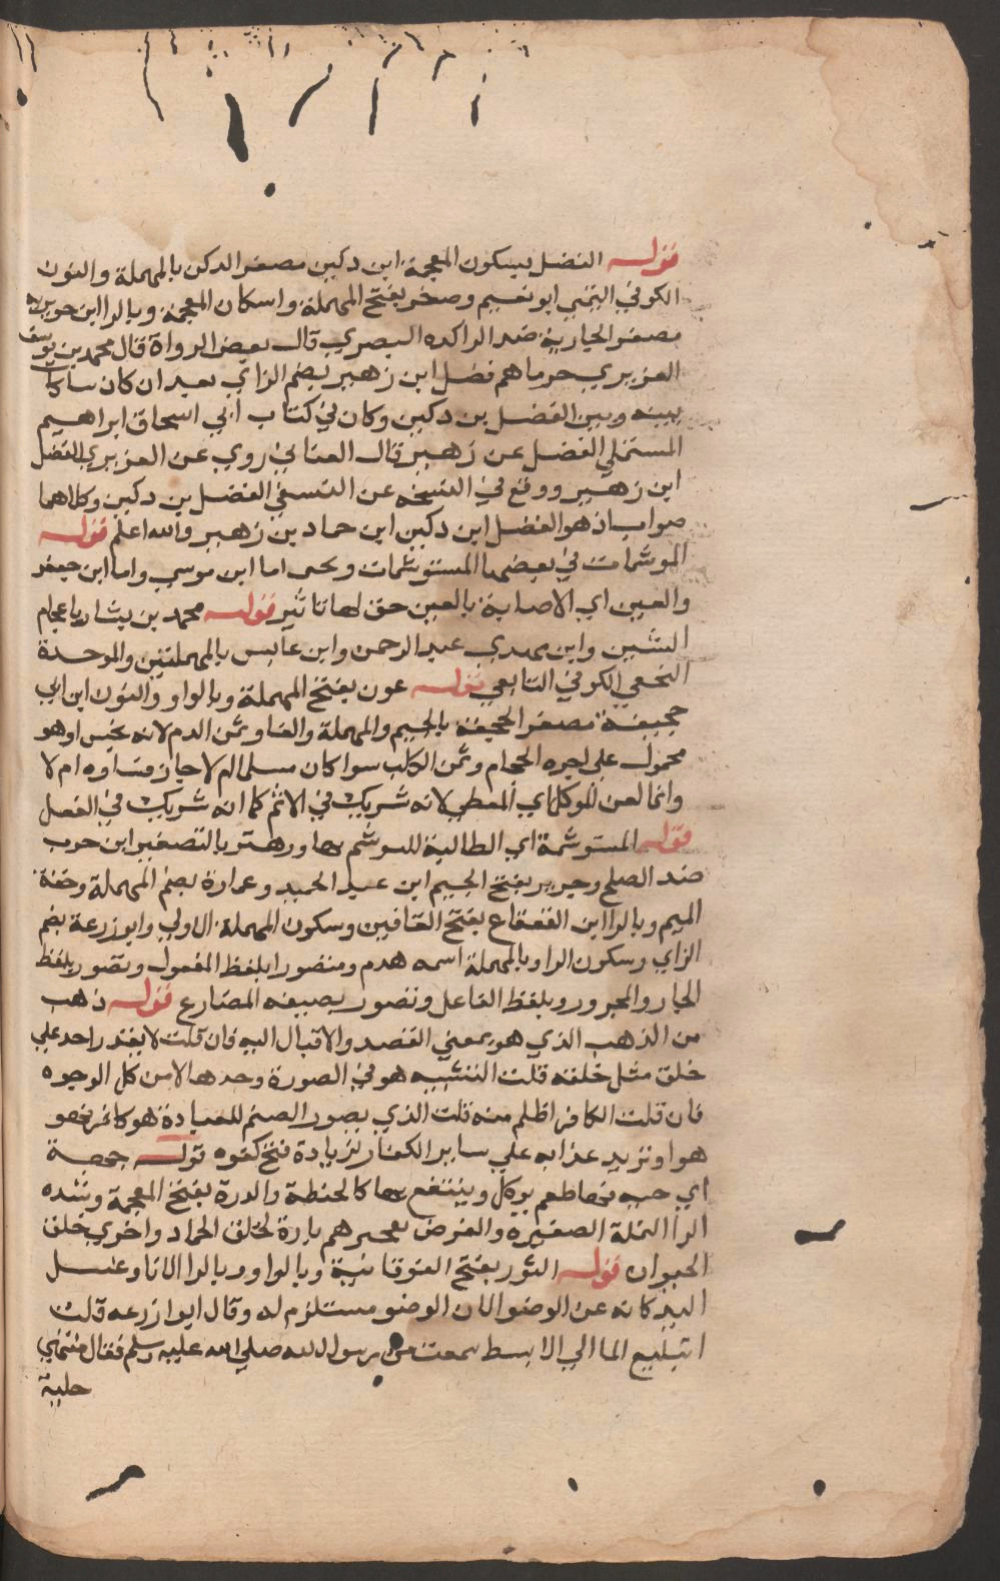 قوله الفضل بسكون المعجمة ابن دكين مصغر الدكن بالمهملة والنون
الكوفي التيمي ابو نعيم وصخر بفتح المهملة واسكان المعجمة وبالرا ابن جويرية
مصغر الجارية ضد الراكده البصري قال بعض الرواة قال محمد بن يوسف
الفربري حرما هم فضل ابن زهير بضم الزاي بعيد ان كان ساكا
بينه وبين الفضل بن دكين وكان في كتاب ابي اسحاق ابراهيم
المستملي الفضل عن زهير قال الغساني روي عن الفربري الفضل
ابن زهير ووقع في النسخه عن النسفي الفضل بن دكين وكلاهما
صواب اذ هو الفضل ابن دكين ابن حماد بن زهير والله اعلم قوله
الموشمات في بعضها المستوشمات ويحيى اما ابن موسي واما ابن جعفر
والعين اي الاصابة بالعين حق لها تاثير قوله محمد بن بشار باعجام
الشين وابن مهدي عبد الرحمن وابن عابس بالمهملتين والموحدة
النخعي الكوفي التابعي قوله عون بفتح المهملة وبالواو والنون ابن ابي
جحيفة مصغر الجحيفة بالجيم والمهملة والفا وثمن الدم لانه نجس او هو
محمول علي اجره الحجام وثمن الكلب سوا كان مسلما ام لا جاز قتناوه ام لا
وانما لعن الموكل اي المعطي لانه شريك في الاثم كما انه شريك في الفعل
قوله المستوشمة اي الطالبة للوشم بها وزهير بالتصغير ابن حرب
ضد الصلح وجرير بفتح الجيم ابن عبد الحميد وعمارة بضم المهملة وخفة
الميم وبالرا ابن القعقاع بفتح القافين وسكون المهملة الاولي وابو زرعة بضم
الزاي وسكون الرا وبالمهملة اسمه هرم ومنصورا بلفظ المفعول وبصور بلفظ
الجار والمجرور وبلفظ الفاعل وتصور بصيغه المضارع قوله ذهب
من الذهب الذي هو بمعني القصد والاقبال اليه فان قلت لا يقدر احد علي
خلق مثل خلقه قلت التشبيه هو في الصورة وحدها لا من كل الوجوه
فان قلت الكافر اظلم منه قلت الذي يصور الصنم للعبادة هو كافر فهو
هو او تزيد عذابه علي ساير الكفار لزيادة قبح كفره قوله حبة
اي حبه فيها طعم يوكل وينتفع بها كالحنطة والذرة بفتح المعجمة وشده
الرا النملة الصغيره والغرض تعجيزهم تارة بخلق الجماد واخري بخلق
الحيوان قوله التور بفتح الفوقانية وبالواو وبالرا الانا وغسل
اليد كانه عن الوضو الان الوضو مستلزم له وقال ابوا زرعه قلت
اتبليغ الما الي الابط سمعت من رسول الله صلي الله عليه وسلم فقال منتهي
حلية